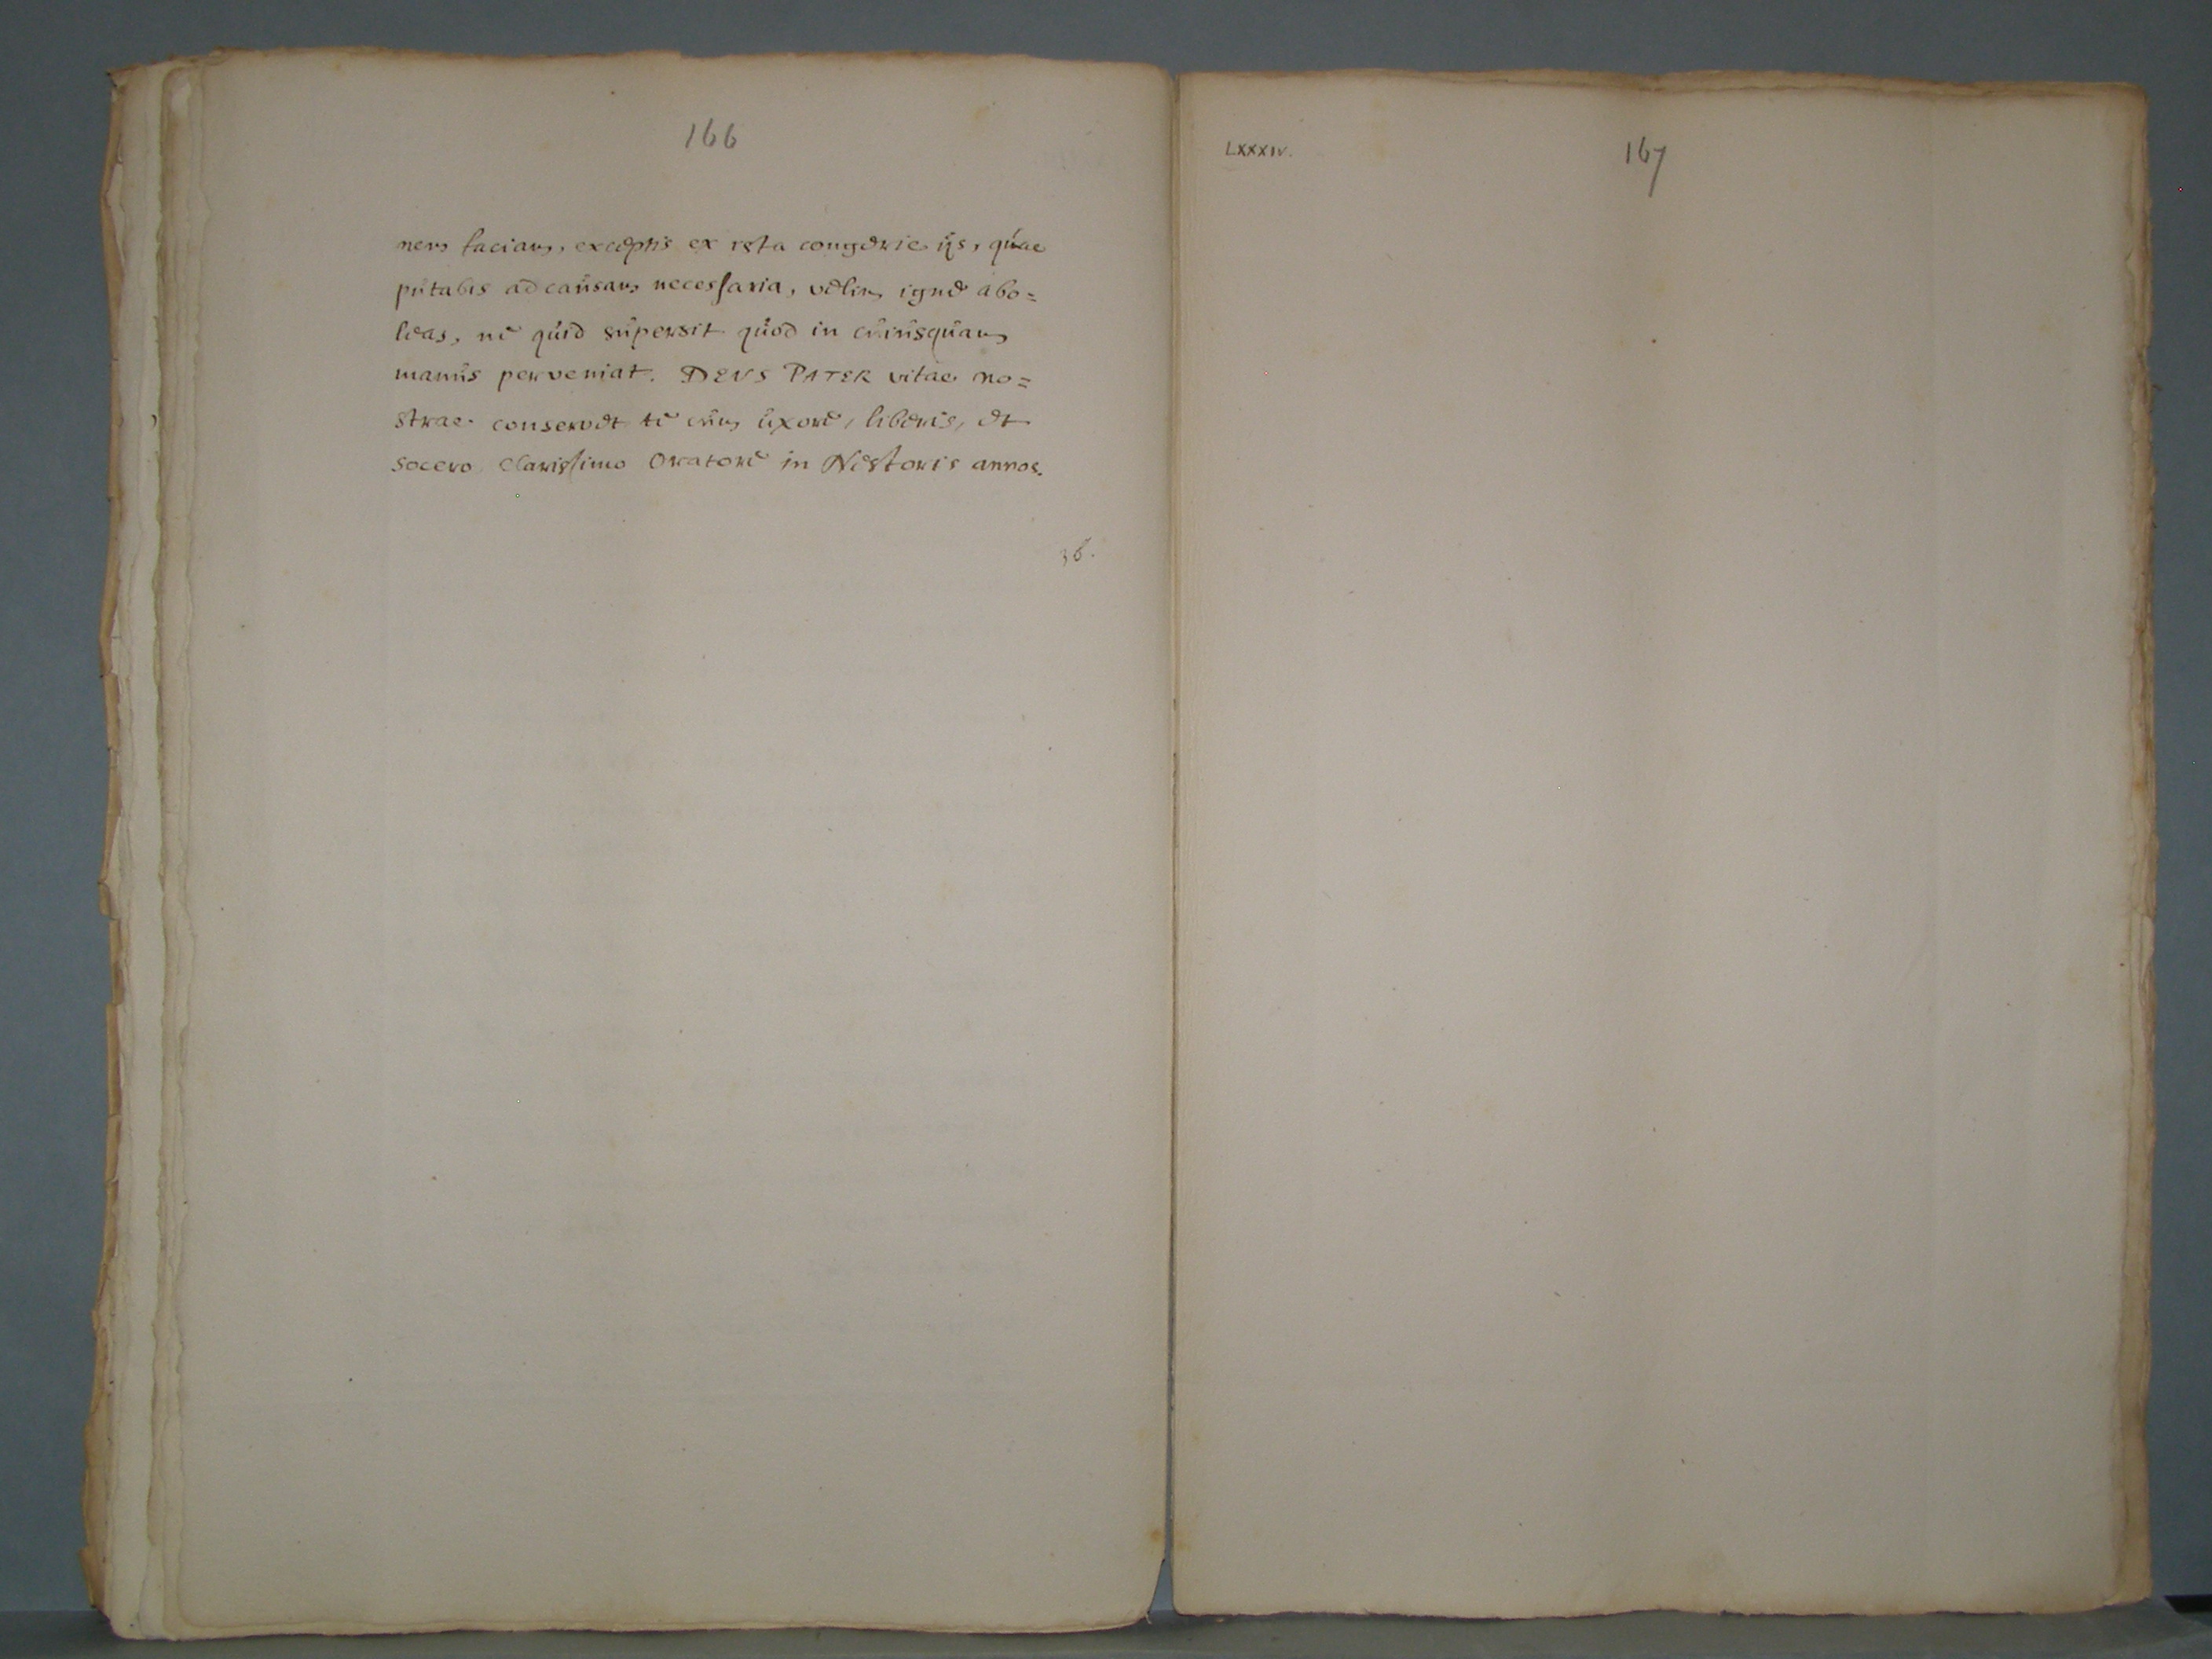 166
nem faciam, exceptis ex ista congerie ijs, quae
putabis ad causam necessaria, velim igne abo=
leas, ne quid supersit quod in cuiusquam
manus perveniat. DEVS PATER vitae no=
strae conservet te cum uxore, liberis, et
socero Clarissimo Oratore in Nestoris annos.
36.
LXXXIV.
167